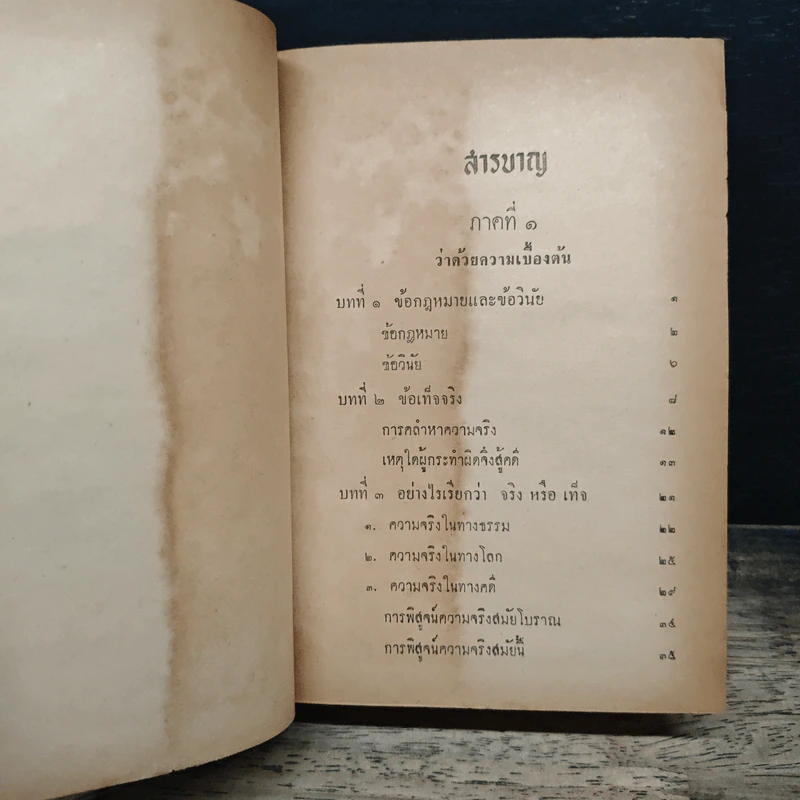 สารบาญ
ภาคที่ ๑
ว่าด้วยความเบื้องต้น
บทที่ ๑ ข้อกฎหมายและข้อวินัย ๑
ข้อกฎหมาย ๒
ข้อวินัย ๖
บทที่ ๒ ข้อเท็จจริง ๘
การคลำหาความจริง ๑๒
เหตุใดผู้กระทำผิดจึงสู้คดี ๑๓
บทที่ ๓ อย่างไรเรียกว่า จริง หรือ เท็จ ๒๑
๑. ความจริงในทางธรรม ๒๒
๒. ความจริงในทางโลก ๒๕
๓. ความจริงในทางคดี ๒๙
การพิสูจน์ความจริงสมัยโบราณ ๓๔
การพิสูจน์ความจริงสมัยนี้ ๓๕